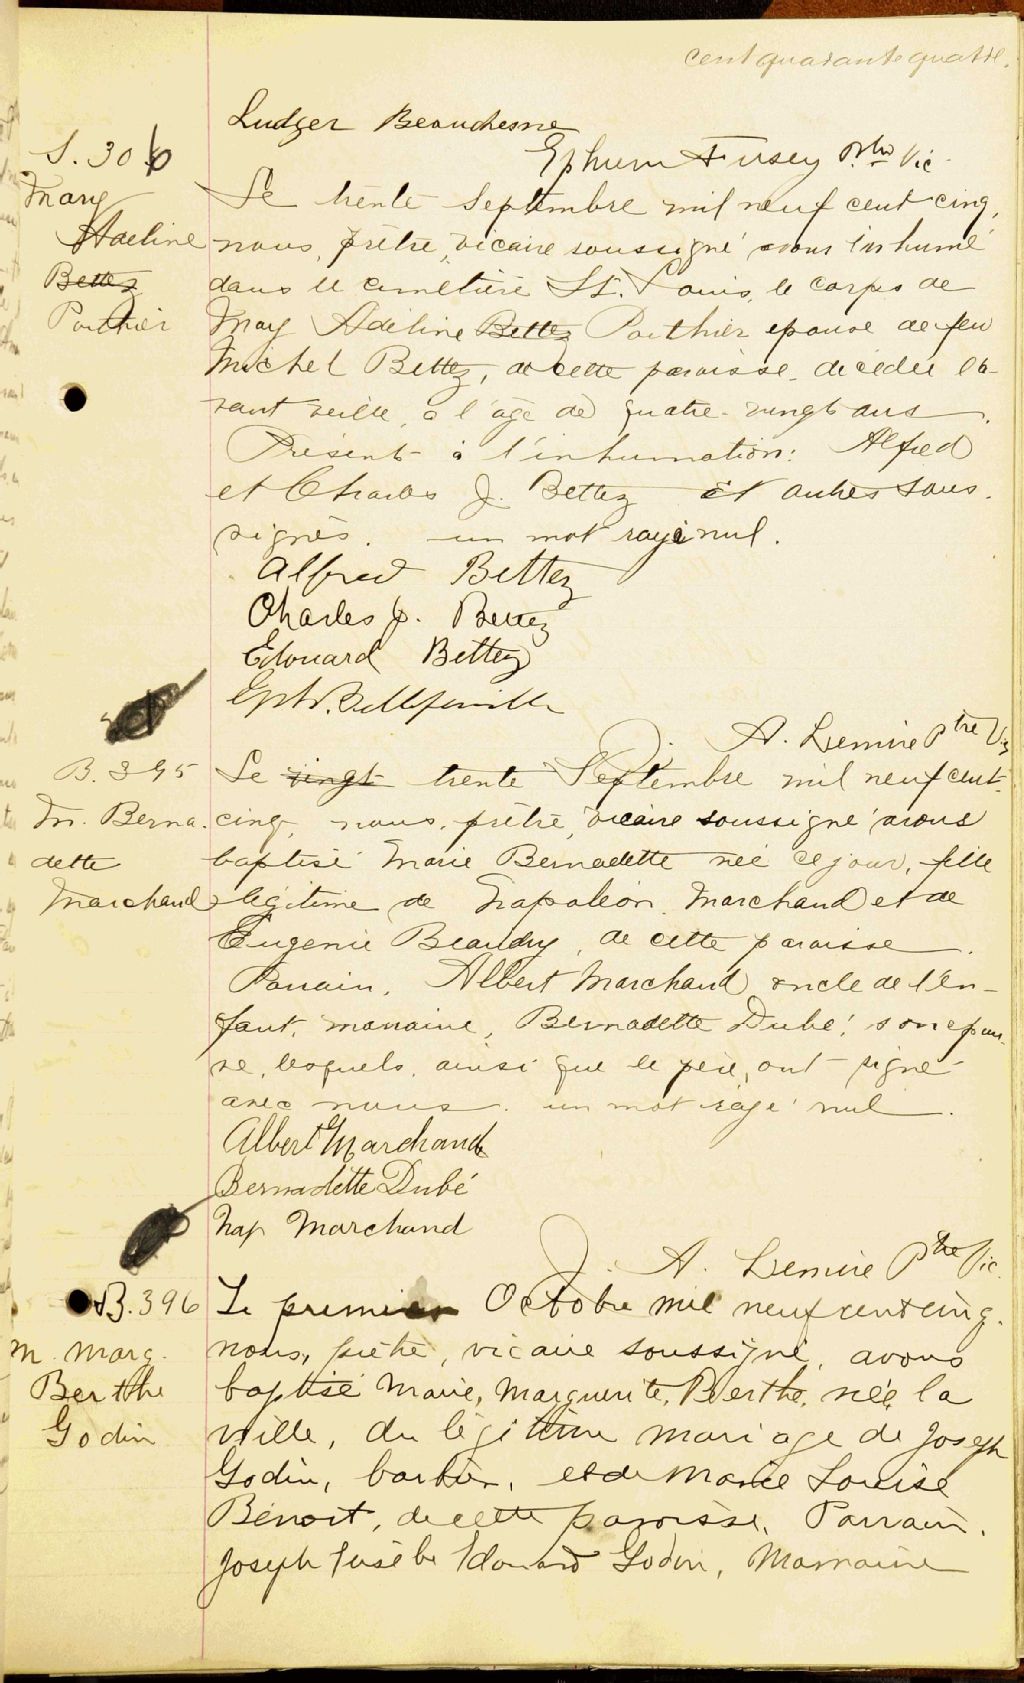 cent quarante quatre.
Ludger Beauchesne
Ephrem Fusey Ptre Vic.
S. 306
Mary
Adeline
Bettez
Pothier
Le trente septembre mil neuf cent cinq,
nous, prêtre, vicaire soussigné avons inhumé
dans le cimetière St. Louis, le corps de
Mary Adéline Bettez Pothier epouse de feu
Michel Bettez, de cette paroisse, décédée l'a-
vant veille, à l'age de quatre-vingt ans.
Présent à l'inhumation: Alfred
et Charles J. Bettez et autres sous.
signés. un mot rayé nul.
Alfred Bettez
Charles J. Bettez
Edouard Bettez
J. A. Lemire Ptre Vic
B. 395
M. Berna.
dette
Marchand
Le vingt trente Septembre mil neuf cent-
cinq, nous, prêtre, vicaire soussigné avons
baptisé Marie Bernadette née ce jour, fille
légitime de Napoléon Marchand et de
Eugenie Beaudry, de cette paroisse.
Parrain, Albert Marchand oncle de l'en-
fant, marraine, Bernadette Dubé, son epou-
se, lesquels, ainsi que le père, ont signé
avec nous. un mot rayé nul.
Albert Marchand
Bernadette Dubé
Nap Marchand
J. A. Lemire Ptre Vic.
B. 396
M. Marg.
Berthe
Godin
Le premier Octobre mil neuf cent cinq.
nous, prêtre, vicaire soussigné, avons
baptisé Marie, Marguerite, Berthe, née la
veille, du légitime mariage de Joseph
Godin, barbier, et de Marie Louise
Benoit, de cette paroisse. Parrain,
Joseph Eusèbe Edouard Godin, Marraine